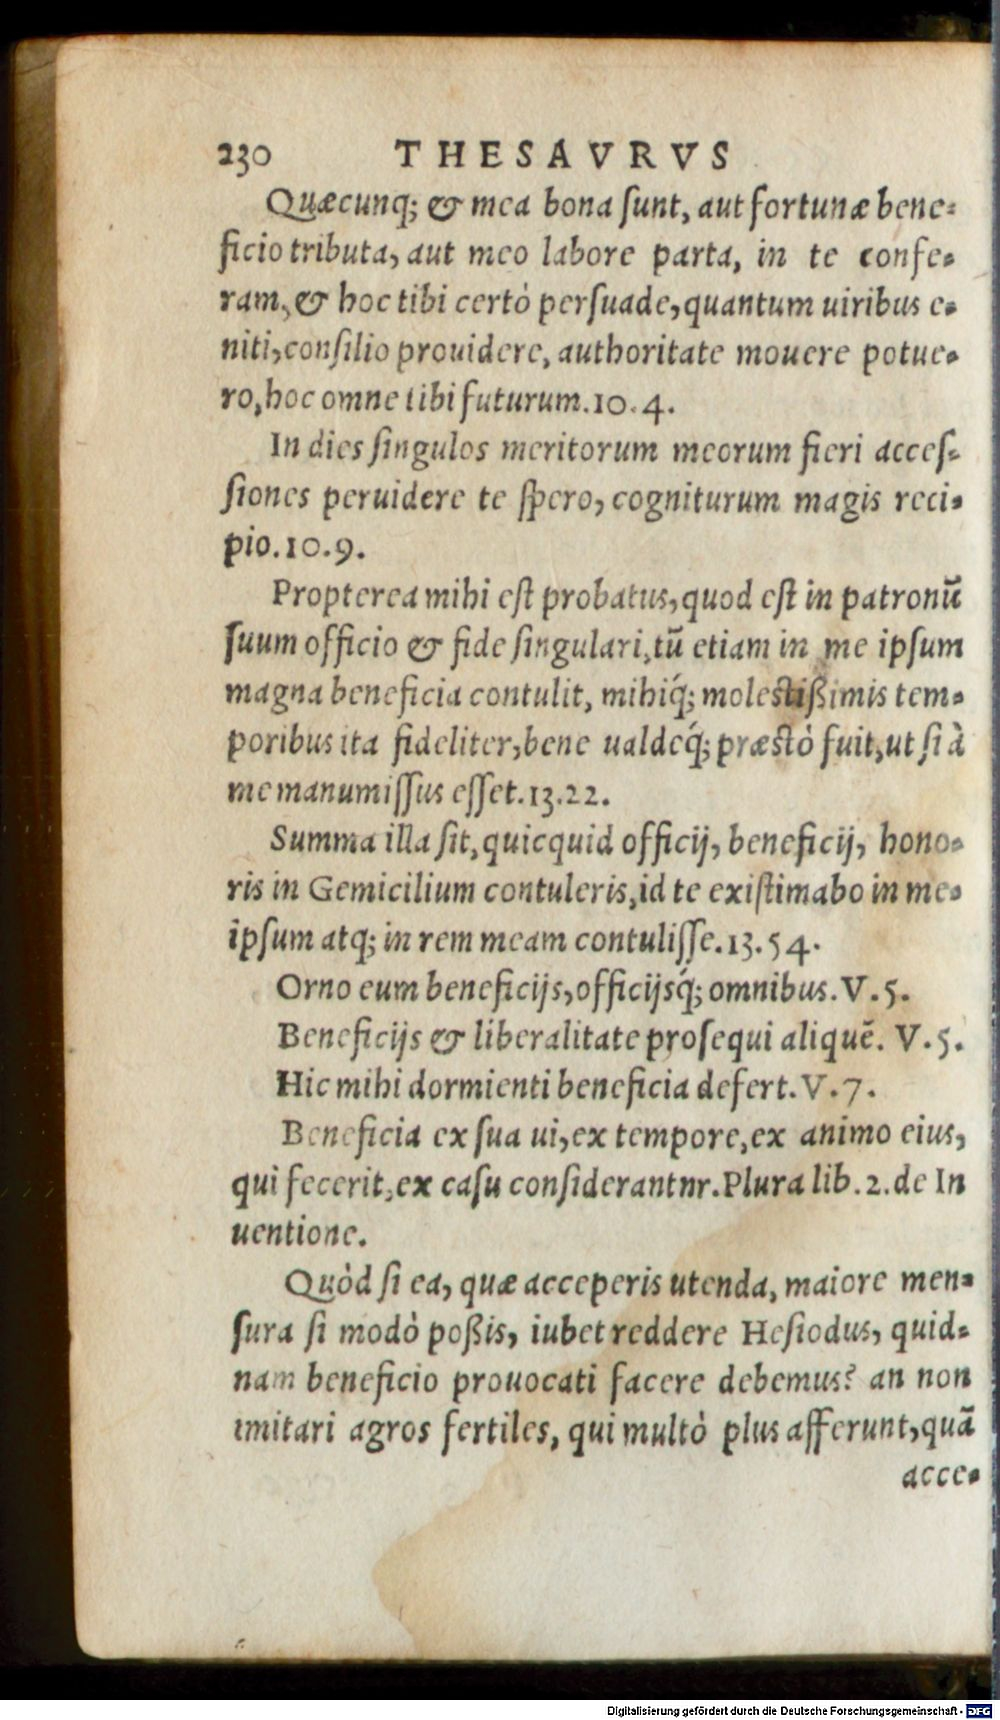 230 THESAVRVS
Quæcunq; & mea bona ſunt, aut fortunæ bene-
ficio tributa, aut meo labore parta, in te confe-
ram, & hoc tibi certò perſuade, quantum uiribus e-
niti, conſilio prouidere, authoritate mouere potue-
ro, hoc omne tibi futurum. 10. 4.
In dies ſingulos meritorum meorum fieri acceſ-
ſiones peruidere te ſpero, cogniturum magis reci-
pio. 10. 9.
Propterea mihi eſt probatus, quod eſt in patronũ
ſuum officio & fide ſingulari, tũ etiam in me ipſum
magna beneficia contulit, mihiq́; moleſtißimis tem-
poribus ita fideliter, bene ualdeq́; præſtò fuit, ut ſi à
me manumiſſus eſſet. 13. 22.
Summa illa ſit, quicquid officij, beneficij, hono-
ris in Gemicilium contuleris, id te exiſtimabo in me-
ipſum atq; in rem meam contuliſſe. 13. 54.
Orno eum beneficijs, officijsq́; omnibus. V. 5.
Beneficijs & liberalitate proſequi aliquẽ. V. 5.
Hic mihi dormienti beneficia defert. V. 7.
Beneficia ex ſua ui, ex tempore, ex animo eius,
qui fecerit, ex caſu conſiderantnr. Plura lib. 2. de In
uentione.
Quòd ſi ea, quæ acceperis utenda, maiore men-
ſura ſi modò poßis, iubet reddere Heſiodus, quid-
nam beneficio prouocati facere debemus? an non
imitari agros fertiles, qui multò plus afferunt, quã
acce-
Digitalisierung gefördert durch die Deutsche Forschungsgemeinschaft - DFG